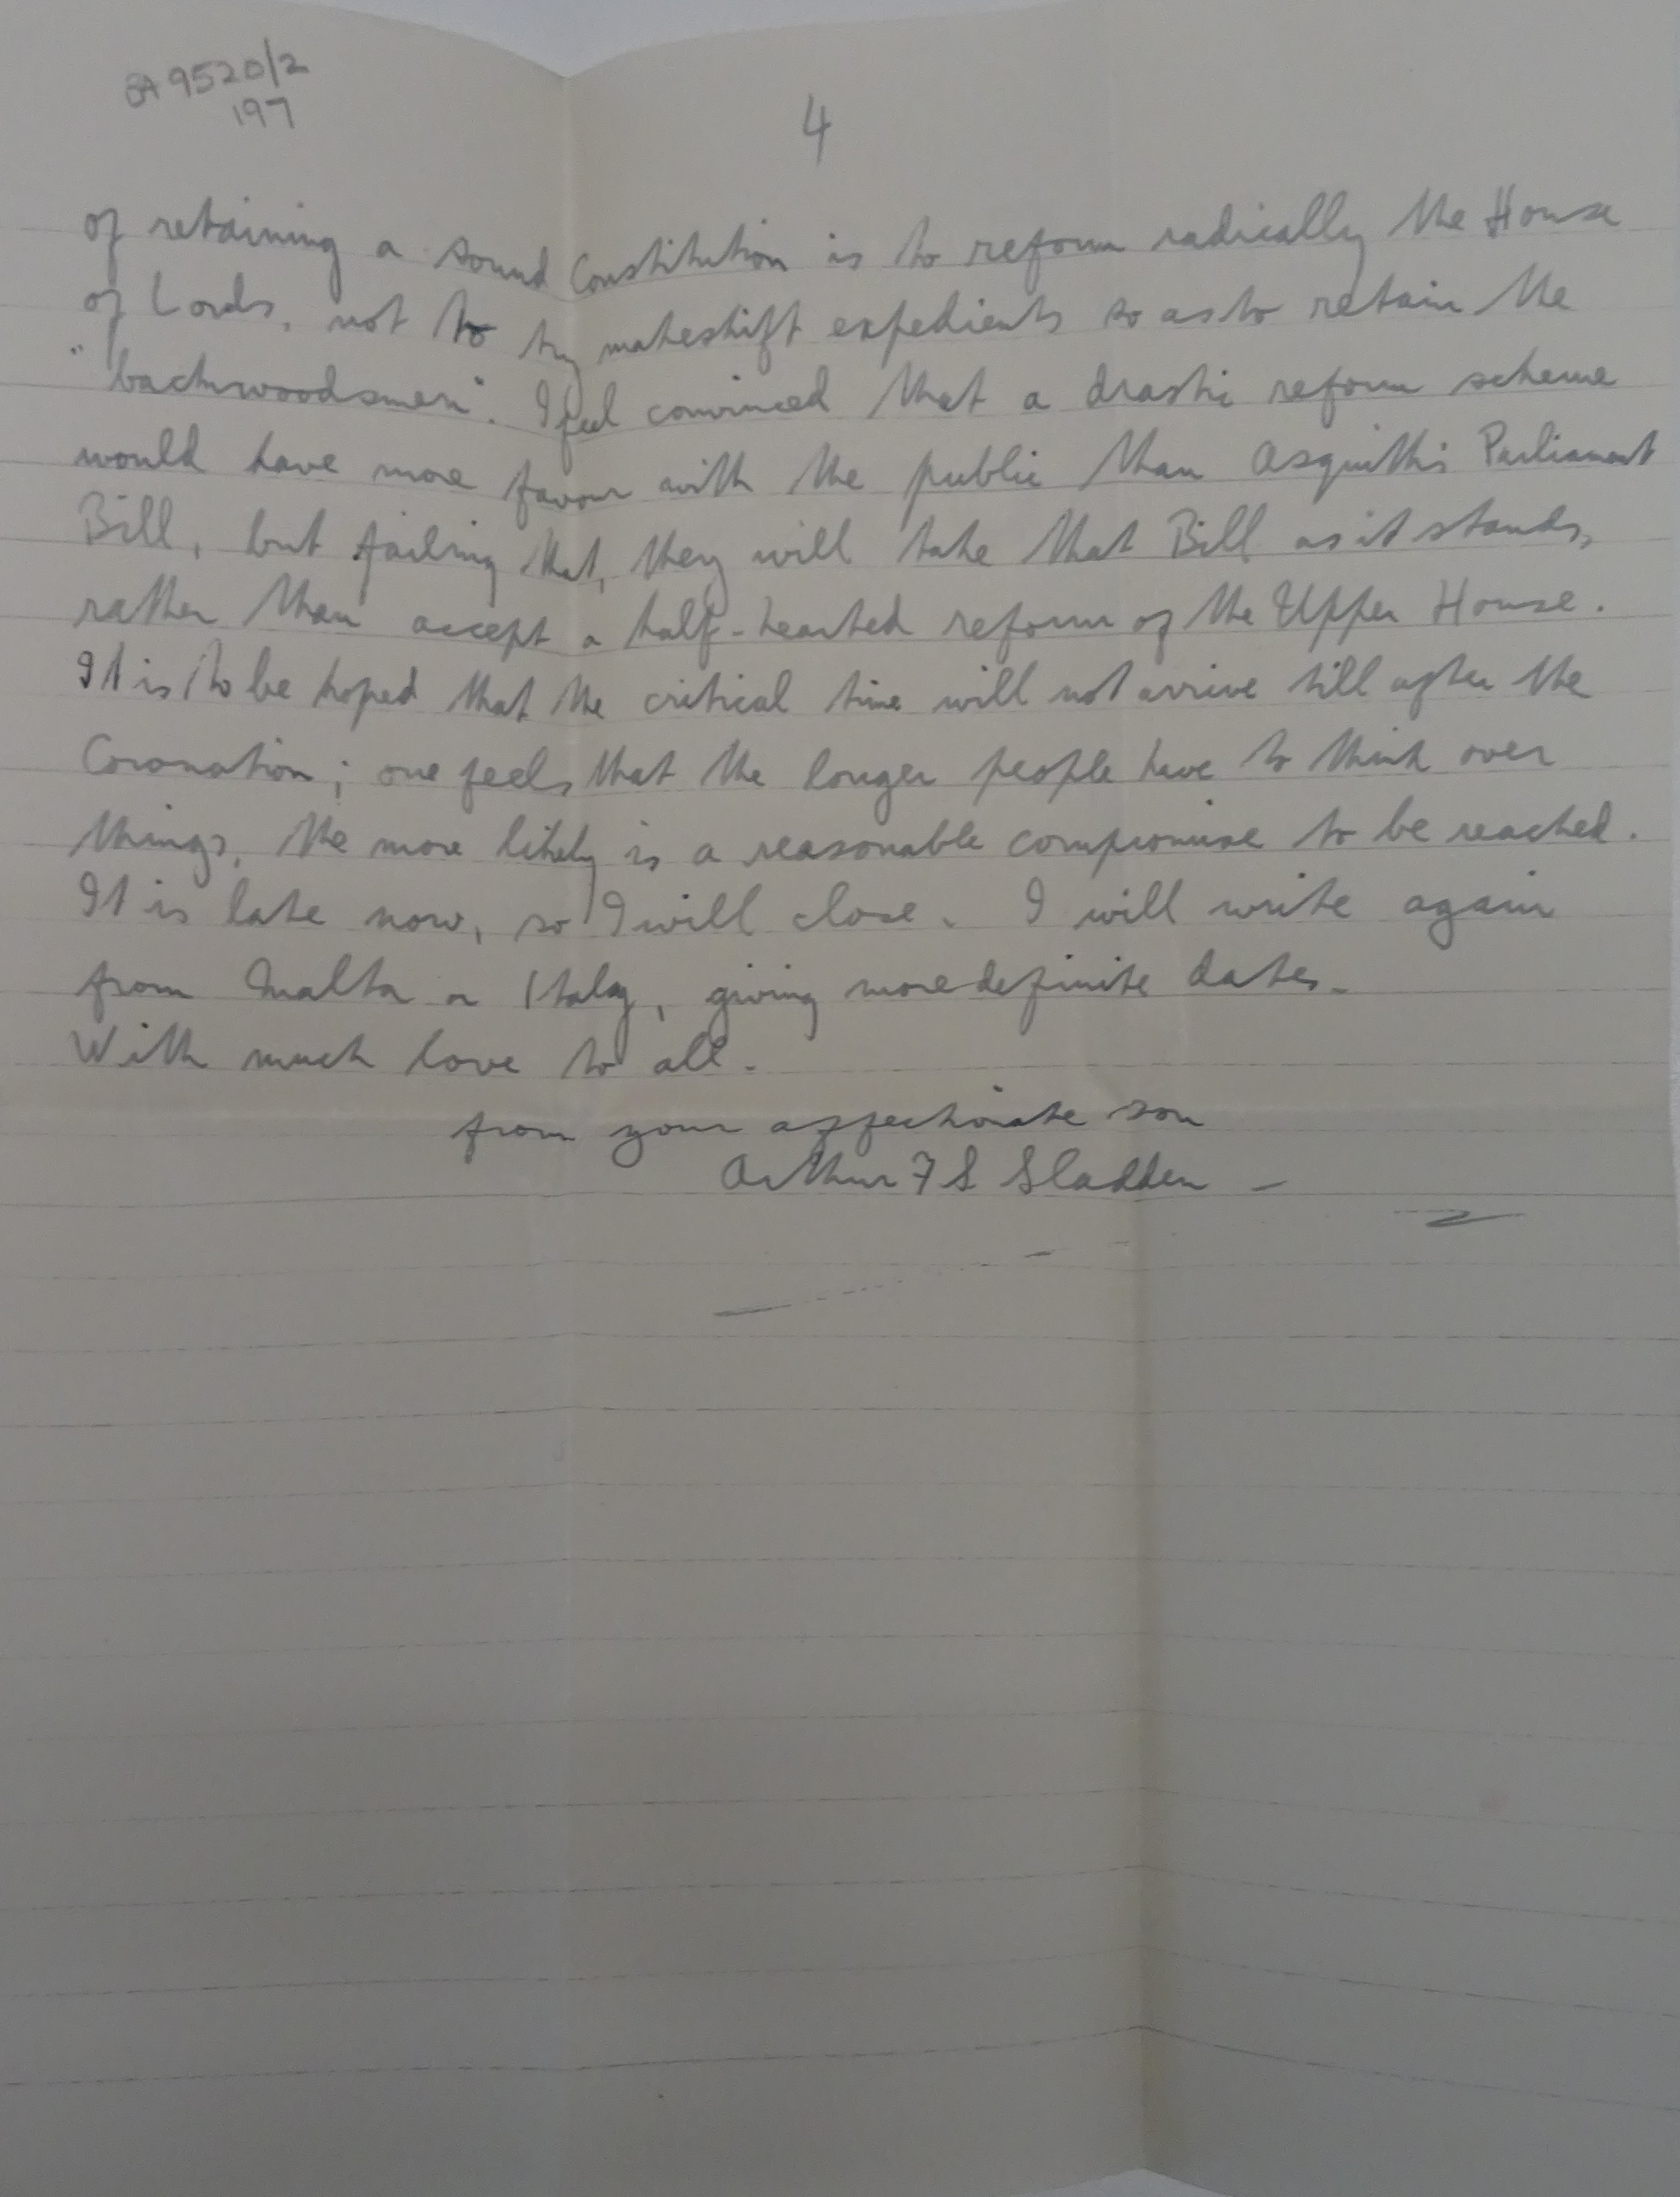 BA 9520/2
197
4
of retaining a sound Constitution is to reform radically the House
of Lords, not to try makeshift expedients so as to retain the
"backwoodsmen". I feel convinced that a drastic reform scheme
would have more favour with the public than Asquith's Parliament
Bill, but failing that, they will take that Bill as it stands,
rather than accept a half-hearted reform of the Upper House.
It is to be hoped that the critical time will not arrive till after the
Coronation; one feels that the longer people have to think over
things, the more likely is a reasonable compromise to be reached.
It is late now, so I will close. I will write again
from Malta or Italy, giving more definite dates.
With much love to all.
from your affectionate son
Arthur F S Sladden